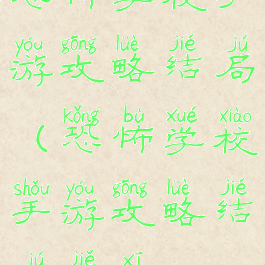 yóu gōng lüè jié jú
游攻略结局
kǒng bù xué xiào
(恐怖学校
shǒu yóu gōng lüè jié
手游攻略结
jú jiě xī